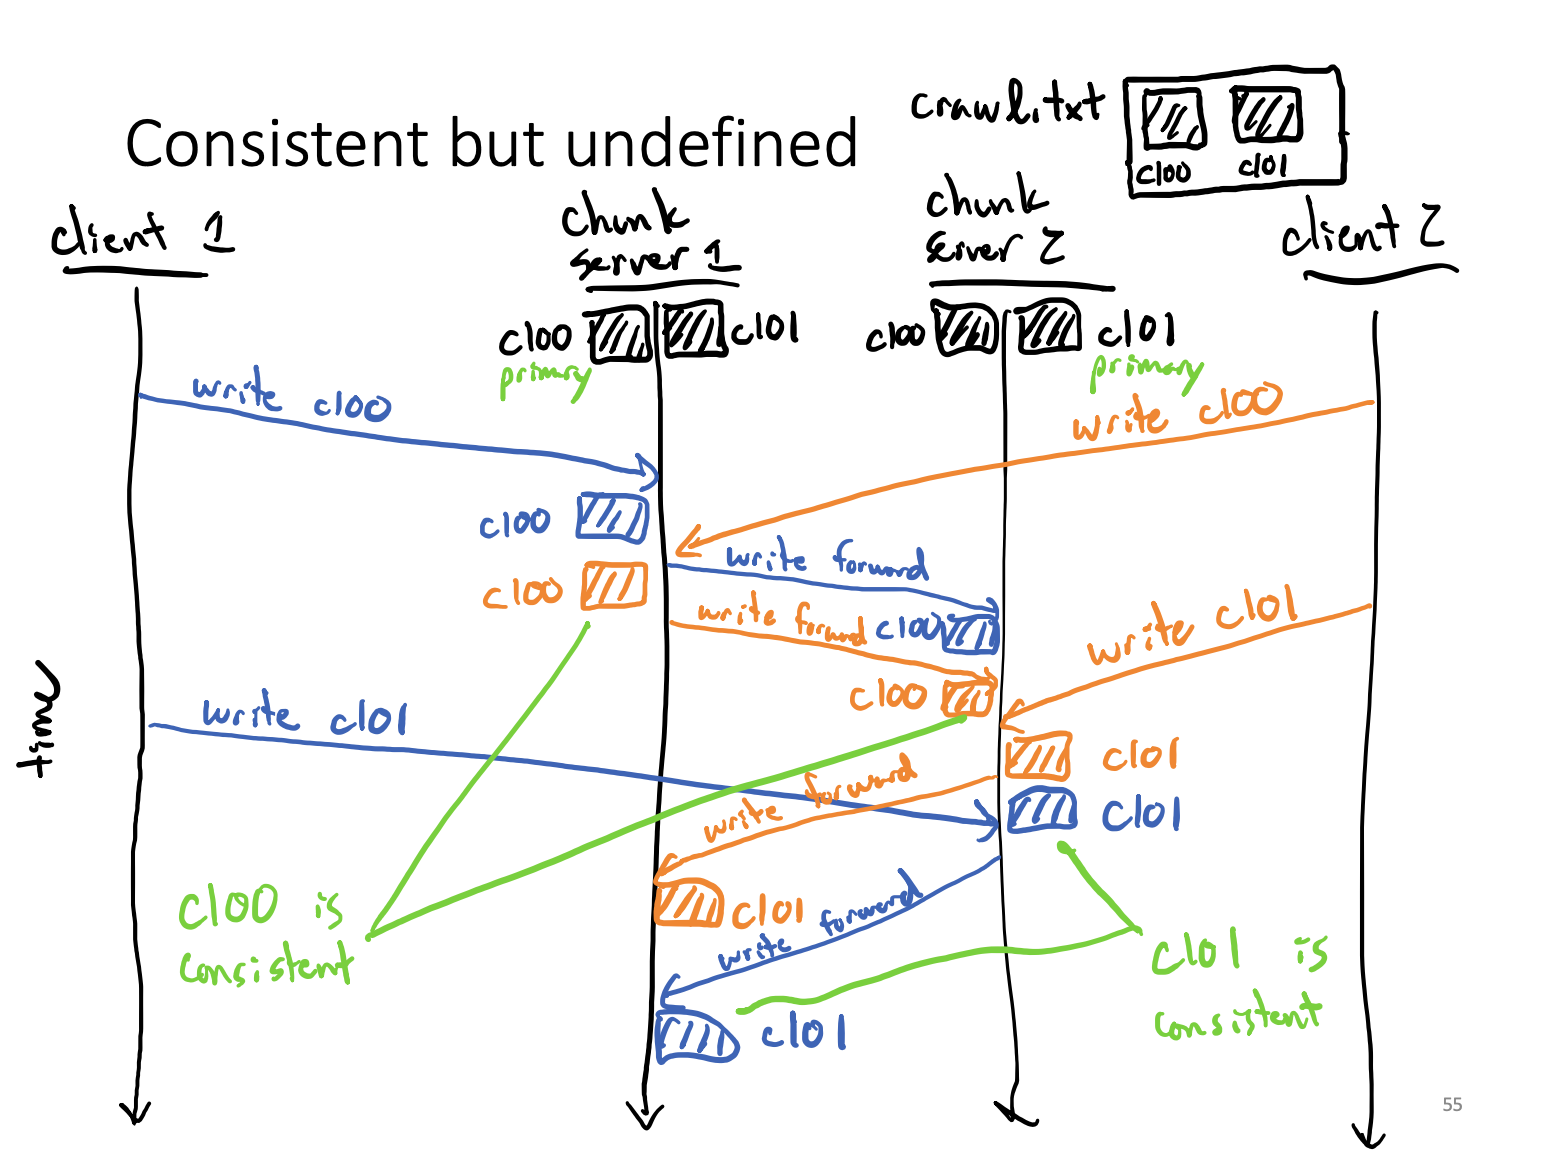 Consistent but undefined
crawli.txt
c100
c101
client 1
chunk
server 1
chunk
server 2
client 2
c100
c101
c100
c101
primary
primary
write c100
write c100
c100
write forward
c100
write forward
c100
write c101
c100
write c101
c101
write forward
c101
c101
write forward
c101
time
c100 is
consistent
c101 is
consistent
55